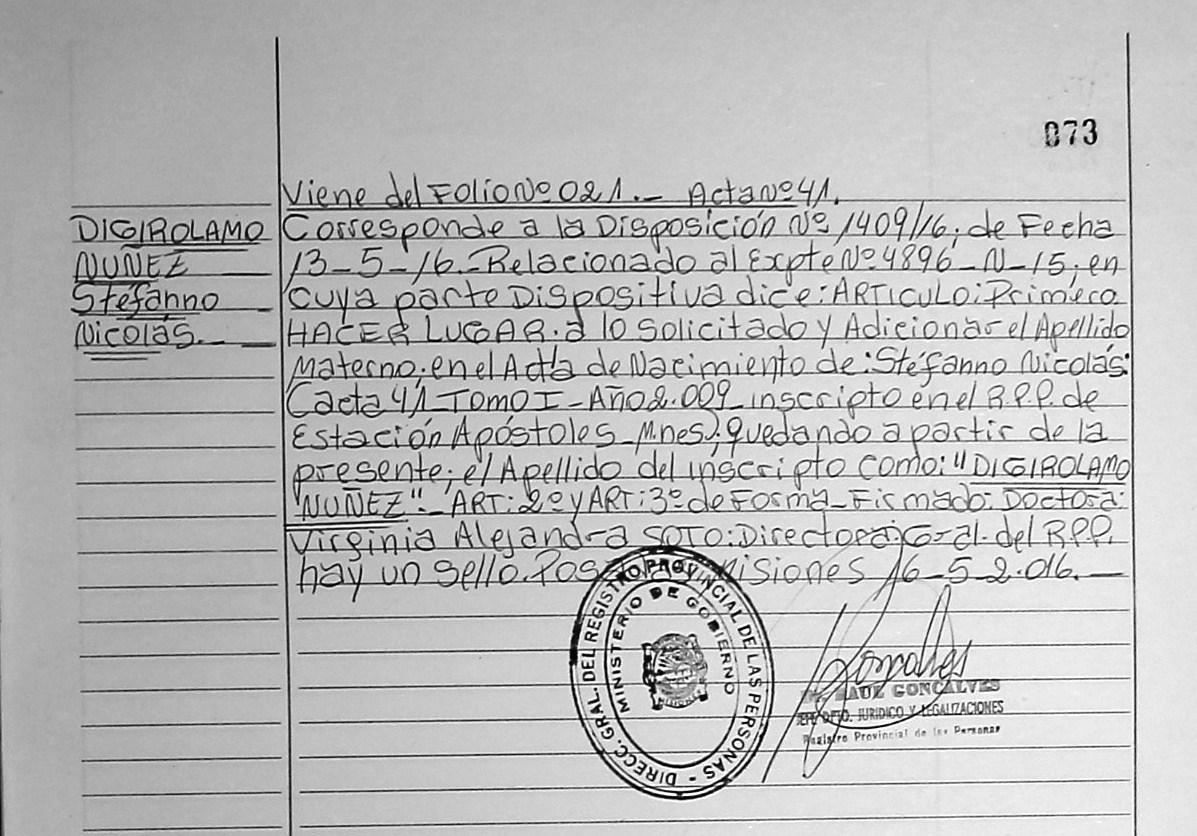 073
Viene del Folio Nº 021.- Acta Nº 41.
DIGIROLAMO
NUÑEZ
Stéfanno
Nicolás.
Corresponde a la Disposición Nº 1409/16; de Fecha
13-5-16.-Relacionado al Expte Nº 4896-N-15; en
cuya parte Dispositiva dice: ARTICULO: Primero
HACER LUGAR: a lo solicitado y Adicionar el Apellido
Materno; en el Acta de Nacimiento de: Stéfanno Nicolás:
(acta 41-Tomo I-Año 2.009-inscripto en el R.P.P. de
Estación Apóstoles-Mnes); quedando a partir de la
presente; el Apellido del inscripto como: "DIGIROLAMO
NUÑEZ".-ART: 2º y ART: 3º de Forma-Firmado: Doctora:
Virginia Alejandra SOTO: Directora: Gral. del R.P.P.
hay un sello. Misiones 16-5-2.016.-
DIRECC. GRAL. DEL REGISTRO PROVINCIAL DE LAS PERSONAS -
MINISTERIO DE GOBIERNO
RAUL GONCALVES
JEFE DPTO. JURIDICO Y LEGALIZACIONES
Registro Provincial de las Personas